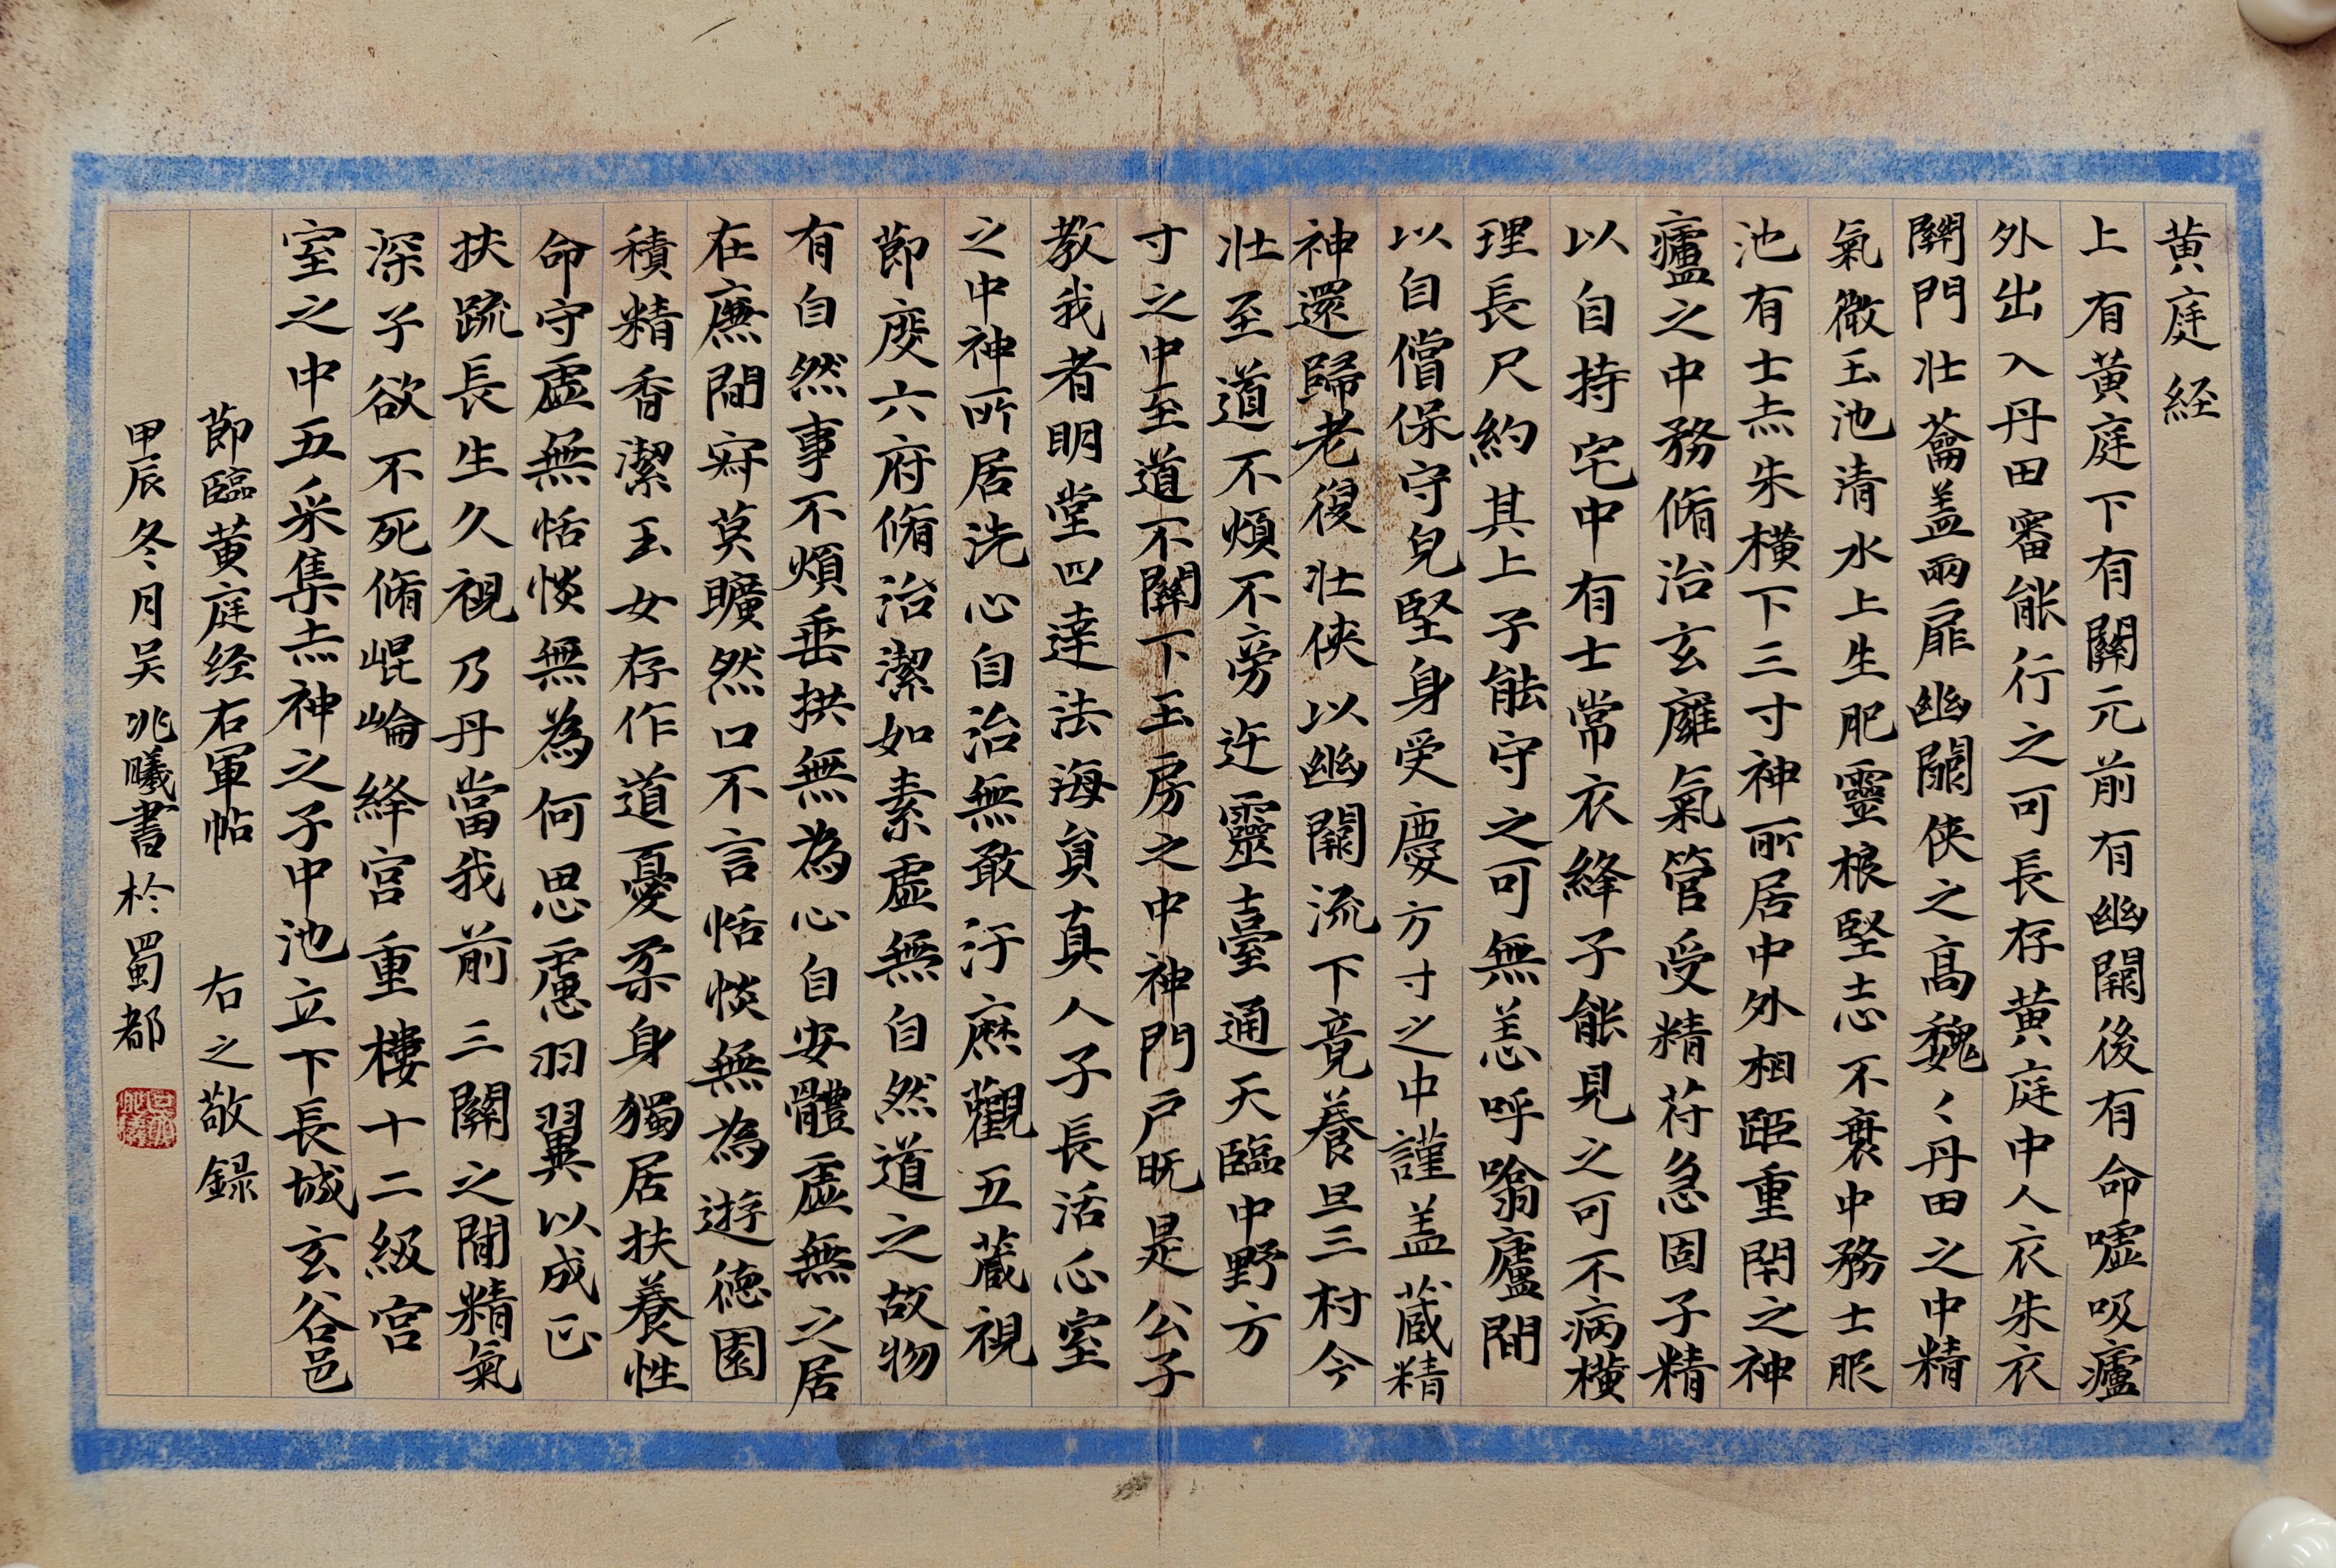 黄庭経
上有黄庭下有關元前有幽闕後有命噓吸廬
外出入丹田審能行之可長存黄庭中人衣朱衣
關門壯蘥盖兩扉幽闕俠之高魏〻丹田之中精
氣微玉池清水上生肥靈根堅志不衰中務士服
池有士赤朱横下三寸神所居中外相距重閇之神
廬之中務脩治玄廱氣管受精苻急固子精
以自持宅中有士常衣絳子能見之可不病横
理長尺約其上子能守之可無恙呼噏廬間
以自償保守皃堅身受慶方寸之中謹盖蔵精
神還歸老復壯俠以幽闕流下竟養旦三村今
壯至道不煩不旁迕靈臺通天臨中野方
寸之中至道不關下玉房之中神門户既是公子
教我者明堂四達法海員真人子長活心室
之中神所居洗心自治無敢汙麻觀五蔵視
節度六府脩治潔如素虛無自然道之故物
有自然事不煩垂拱無為心自安體虛無之居
在廉間寂莫曠然口不言恬惔無為遊德園
積精香潔玉女存作道憂柔身獨居扶養性
命守虛無恬惔無為何思慮羽翼以成正
扶疏長生久視乃丹當我前三關之間精氣
深子欲不死脩崐崘絳宫重樓十二級宫
室之中五采集赤神之子中池立下長城玄谷邑
節臨黄庭经右軍帖 右之敬録
甲辰冬月吴兆曦書於蜀都